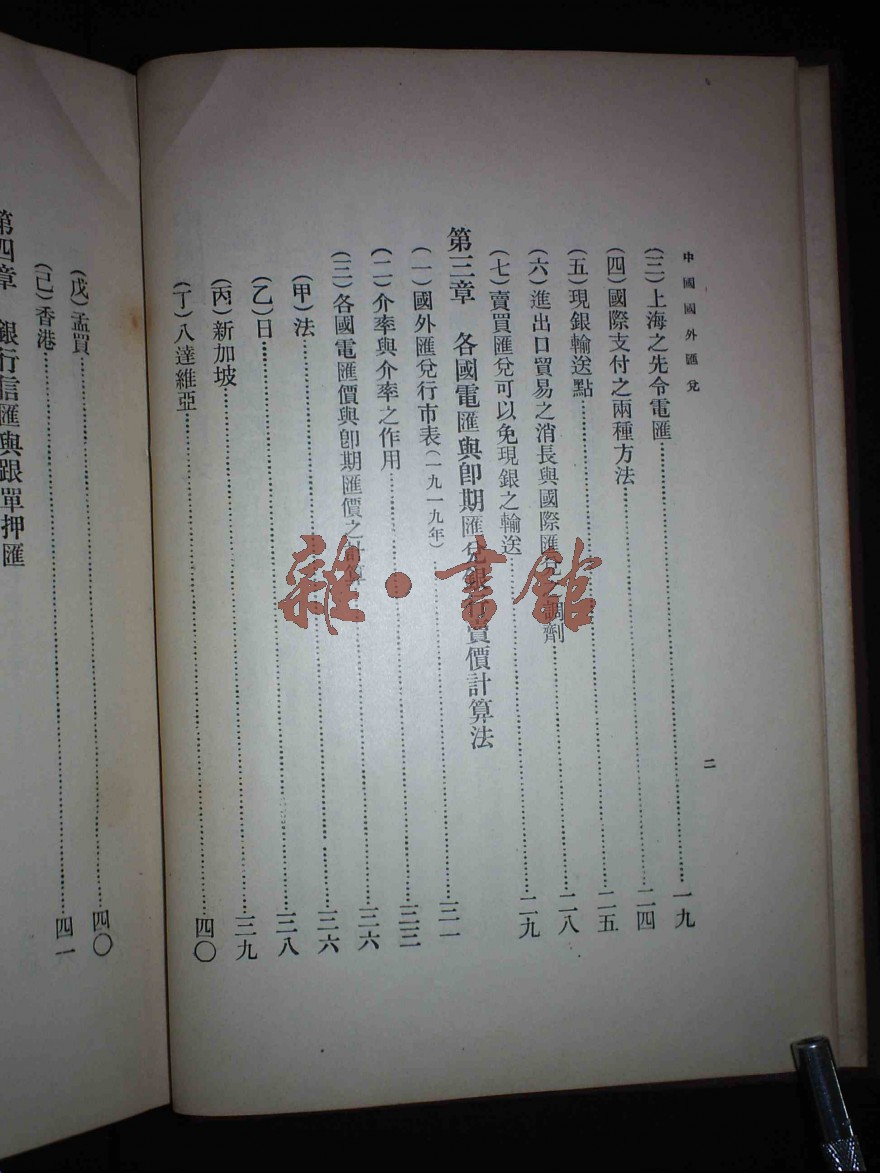 中國國外匯兌
二
(三)上海之先令電匯……一九
(四)國際支付之兩種方法……二四
(五)現銀輸送點……二五
(六)進出口貿易之消長與國際匯兌 調劑……二八
(七)賣買匯兌可以免現銀之輸送……二九
第三章 各國電匯與卽期匯兌銀行賣價計算法
(一)國外匯兌行市表(一九一九年)……三一
(二)介率與介率之作用……三三
(三)各國電匯價與卽期匯價之計算……三六
(甲)法……三六
(乙)日……三八
(丙)新加坡……三九
(丁)八達維亞……四〇
(戊)孟買……四〇
(己)香港……四一
第四章 銀行信匯與跟單押匯
雜·書館